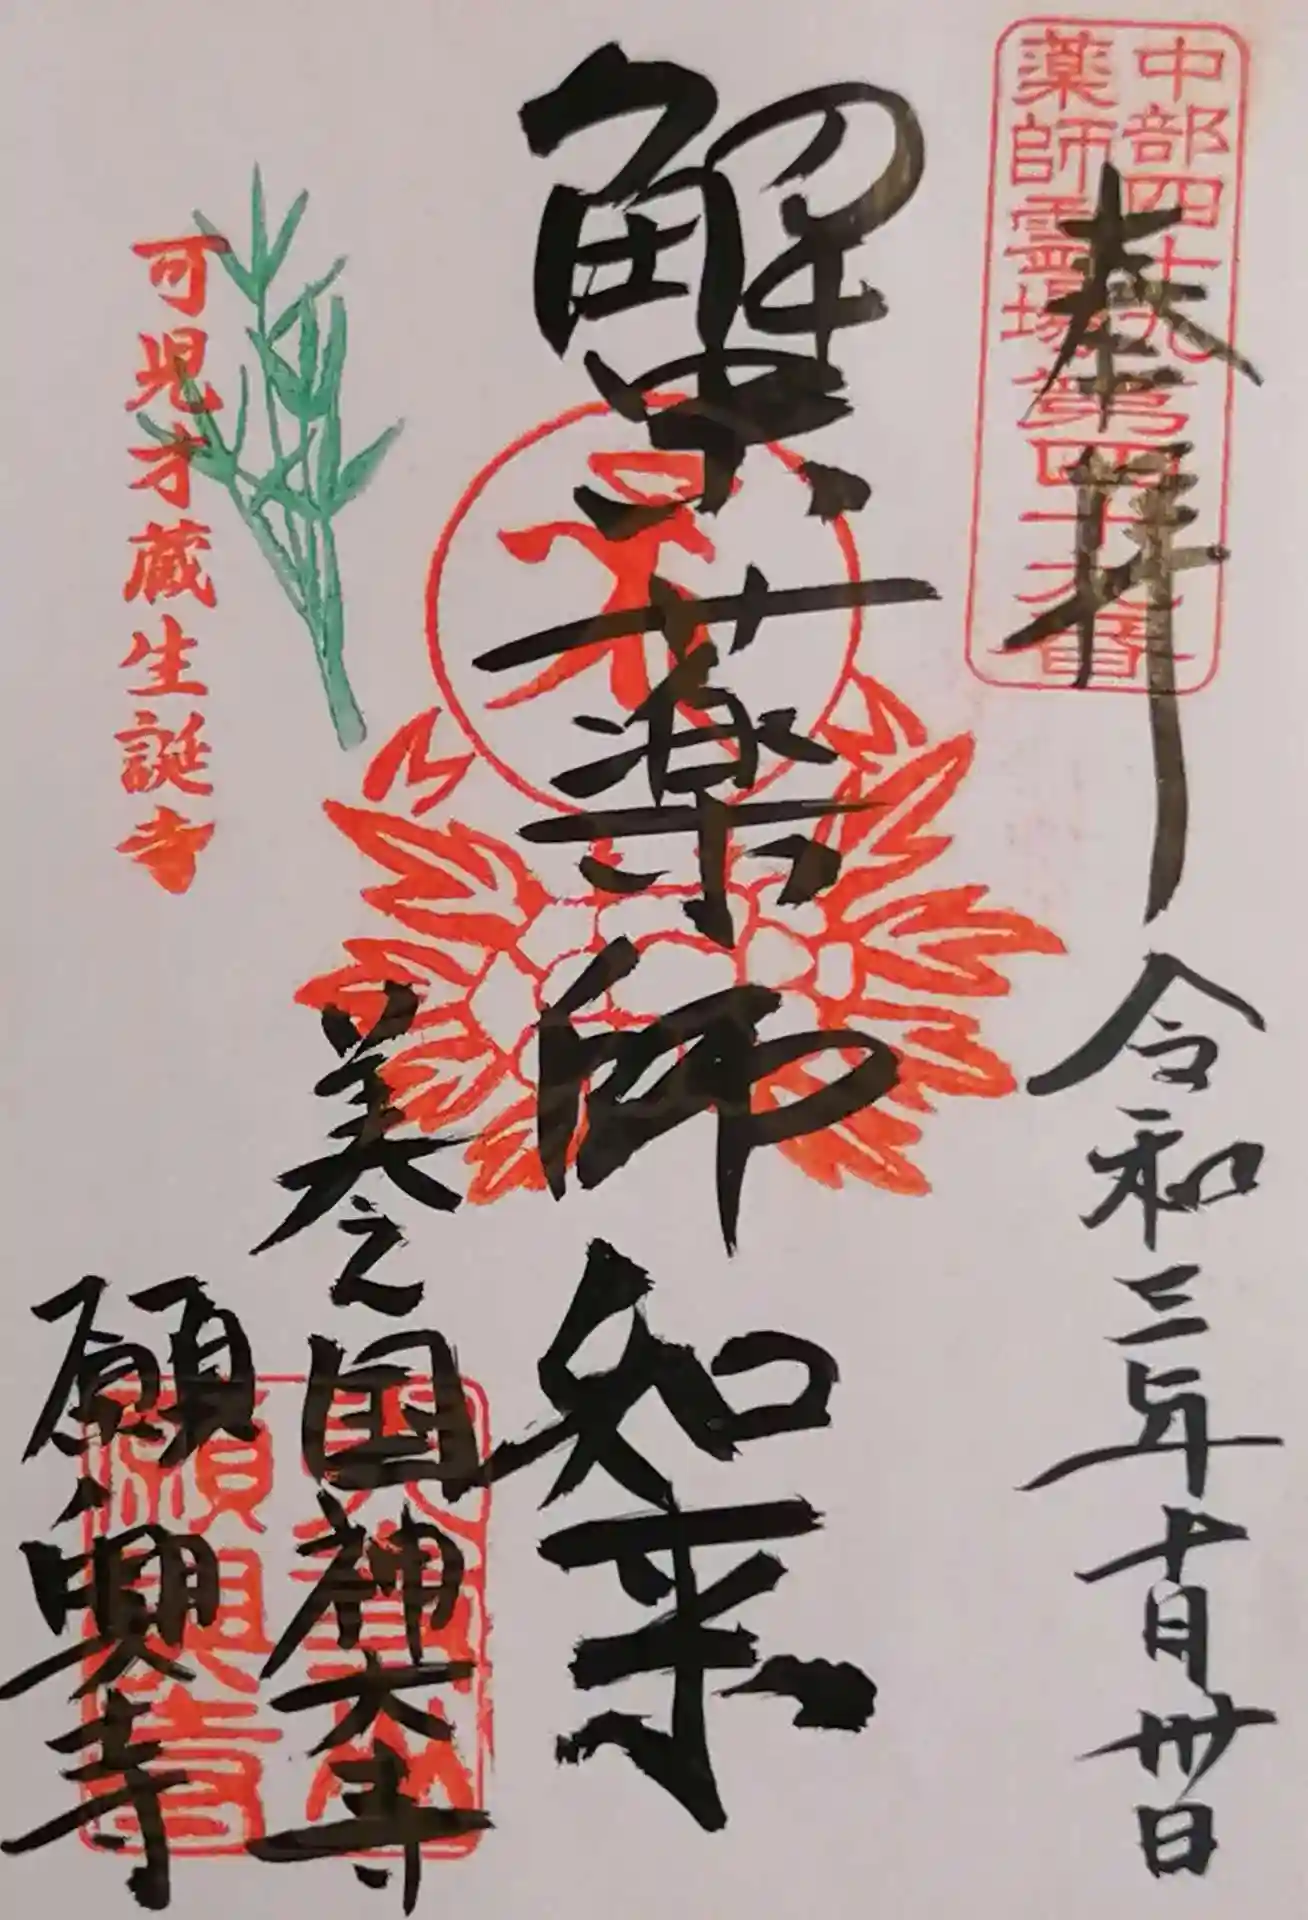 中部四十九
薬師霊場
第四十六番
奉拝
令和三年十月卅日
蟹薬師如来
美之国神大寺
願興寺
大寺山
願興寺
可児才蔵生誕寺